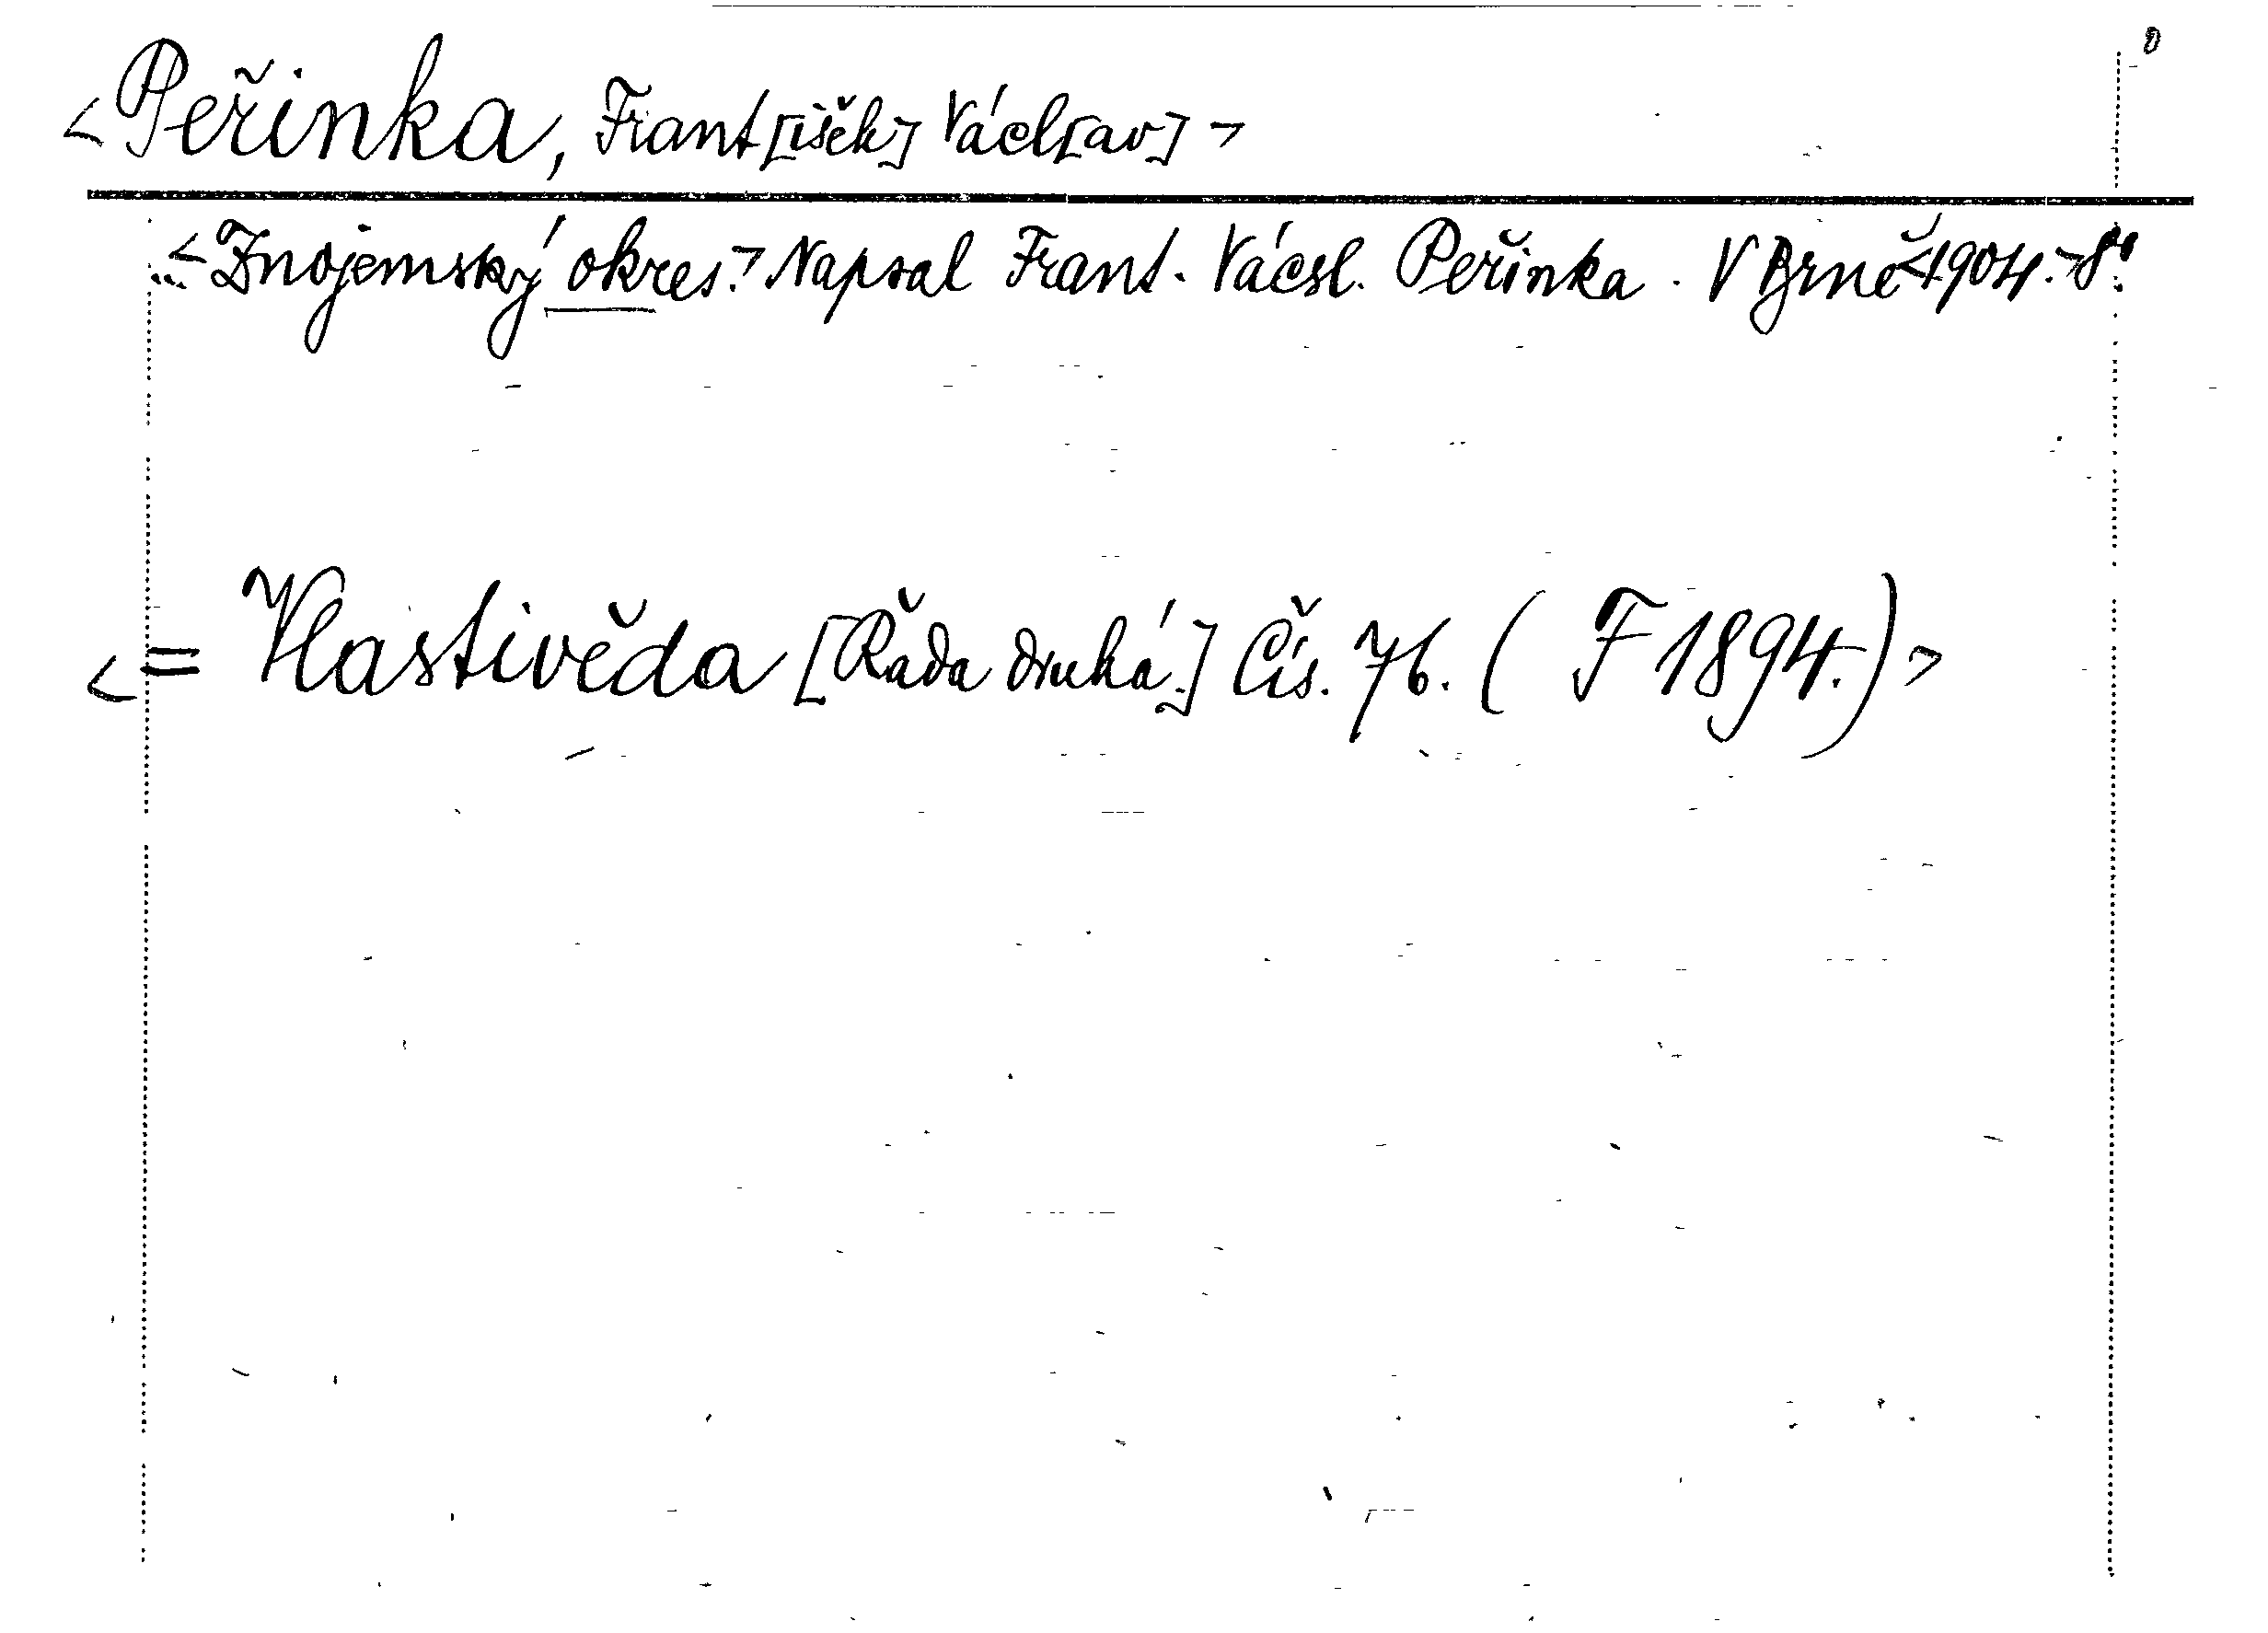 <Peřinka, Frant[išek] Václ[av]>
<Znojemský okres.> Napsal Frant. Vácsl. Peřinka. V Brně <1904.> 8°.
<= Vlastivěda [Řada druhá.] Čís. 76. (F 1894.)>